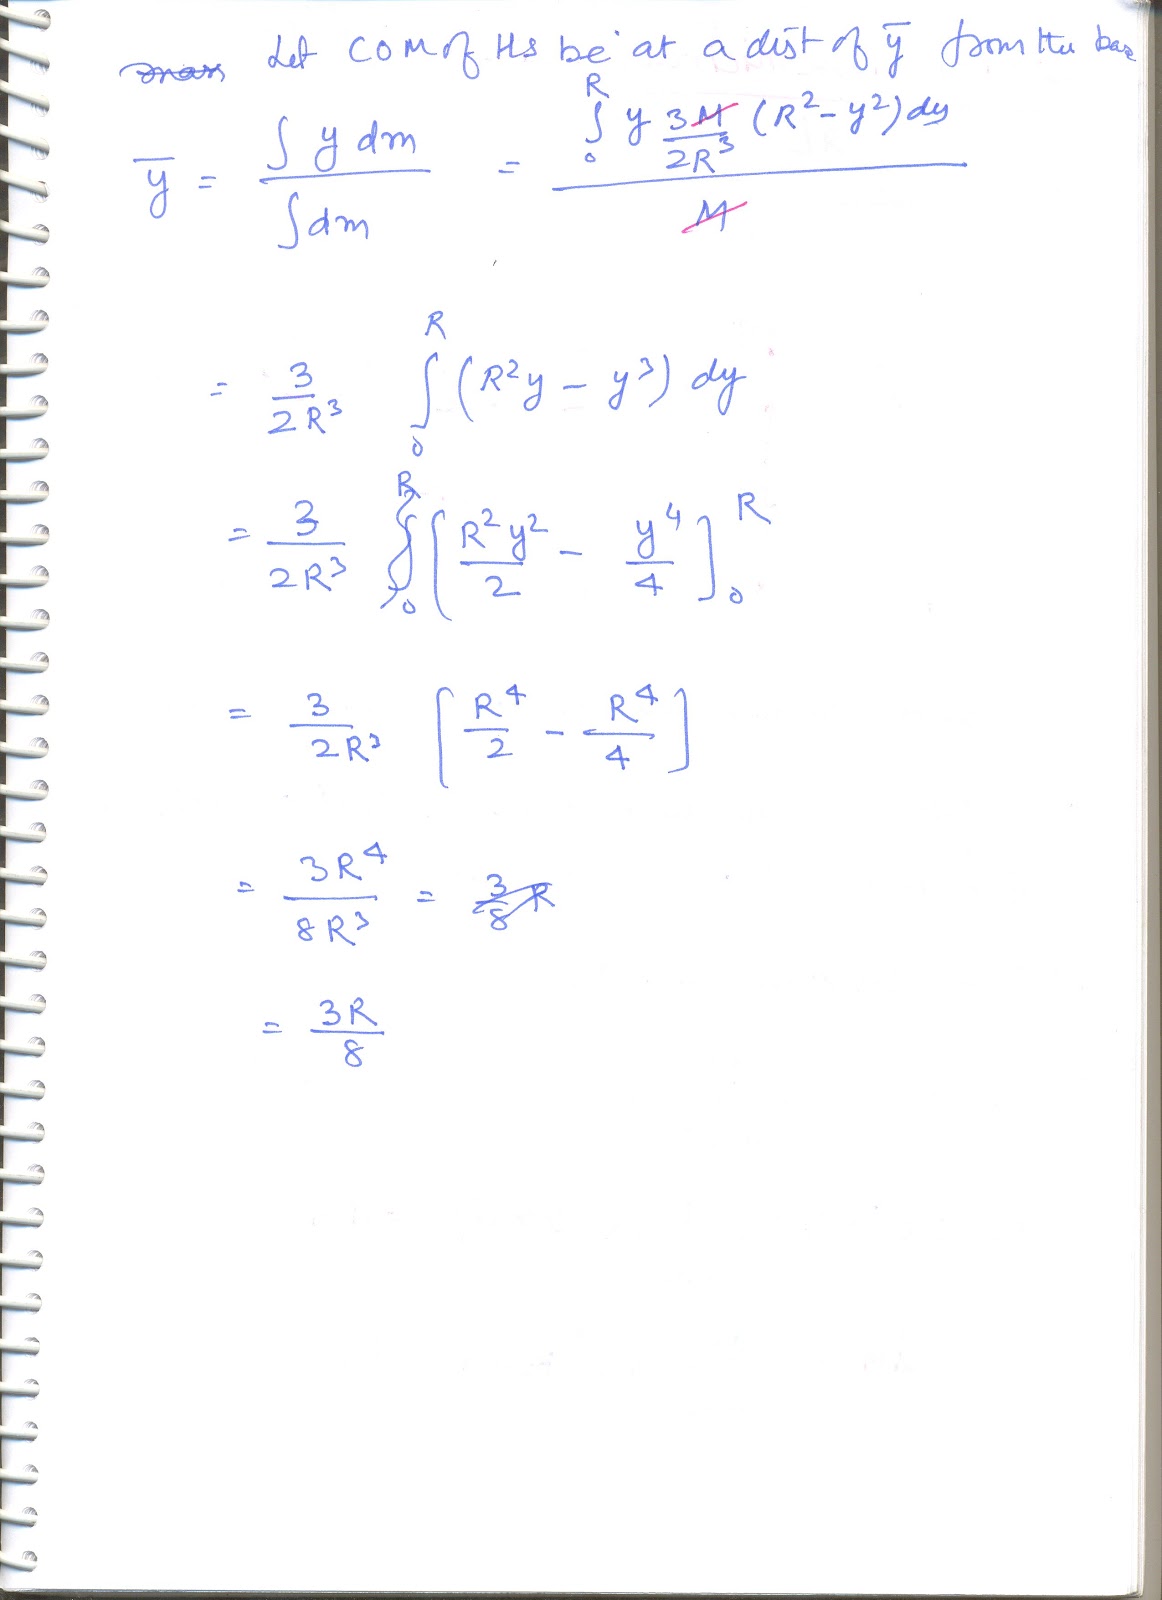 Let COM of HS be at a dist of ȳ from the base
ȳ = ∫ y dm / ∫ dm = ∫₀ᴿ y 3M/2R³ (R² - y²) dy / M
= 3/2R³ ∫₀ᴿ (R²y - y³) dy
= 3/2R³ [R²y²/2 - y⁴/4]₀ᴿ
= 3/2R³ [R⁴/2 - R⁴/4]
= 3R⁴/8R³ = 3/8 R
= 3R/8